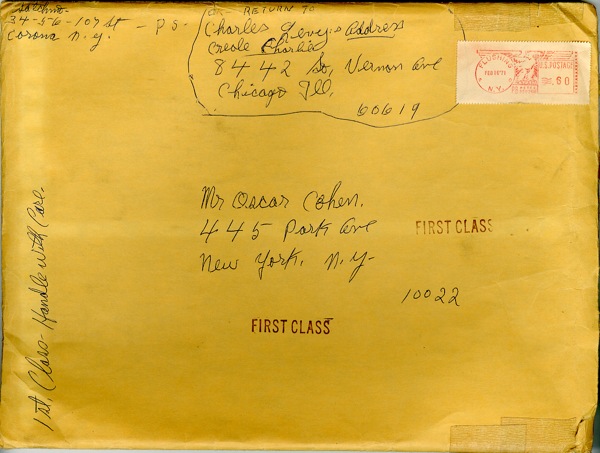 Satchmo-
34-56-107 St - P.S.
Corona N.Y.
or - RETURN TO
Charles Levy's Address
Creole Charlie
8442 So, Vernon Ave
Chicago Ill,
60619
FLUSHING
N.Y.
U.S. POSTAGE
.60
Mr Oscar Cohen.
445 Park Ave
New York. N.Y-
10022
FIRST CLASS
FIRST CLASS
1st, Class- Handle with Care.